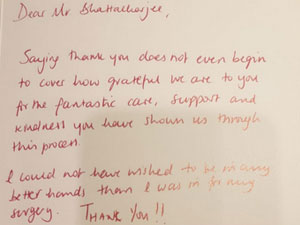 Dear Mr Bhattacharjee,
Saying thank you does not even begin
to cover how grateful we are to you
for the fantastic care, support and
kindness you have shown us through
this process.
I could not have wished to be in any
better hands than I was in for my
surgery. THANK YOU!!